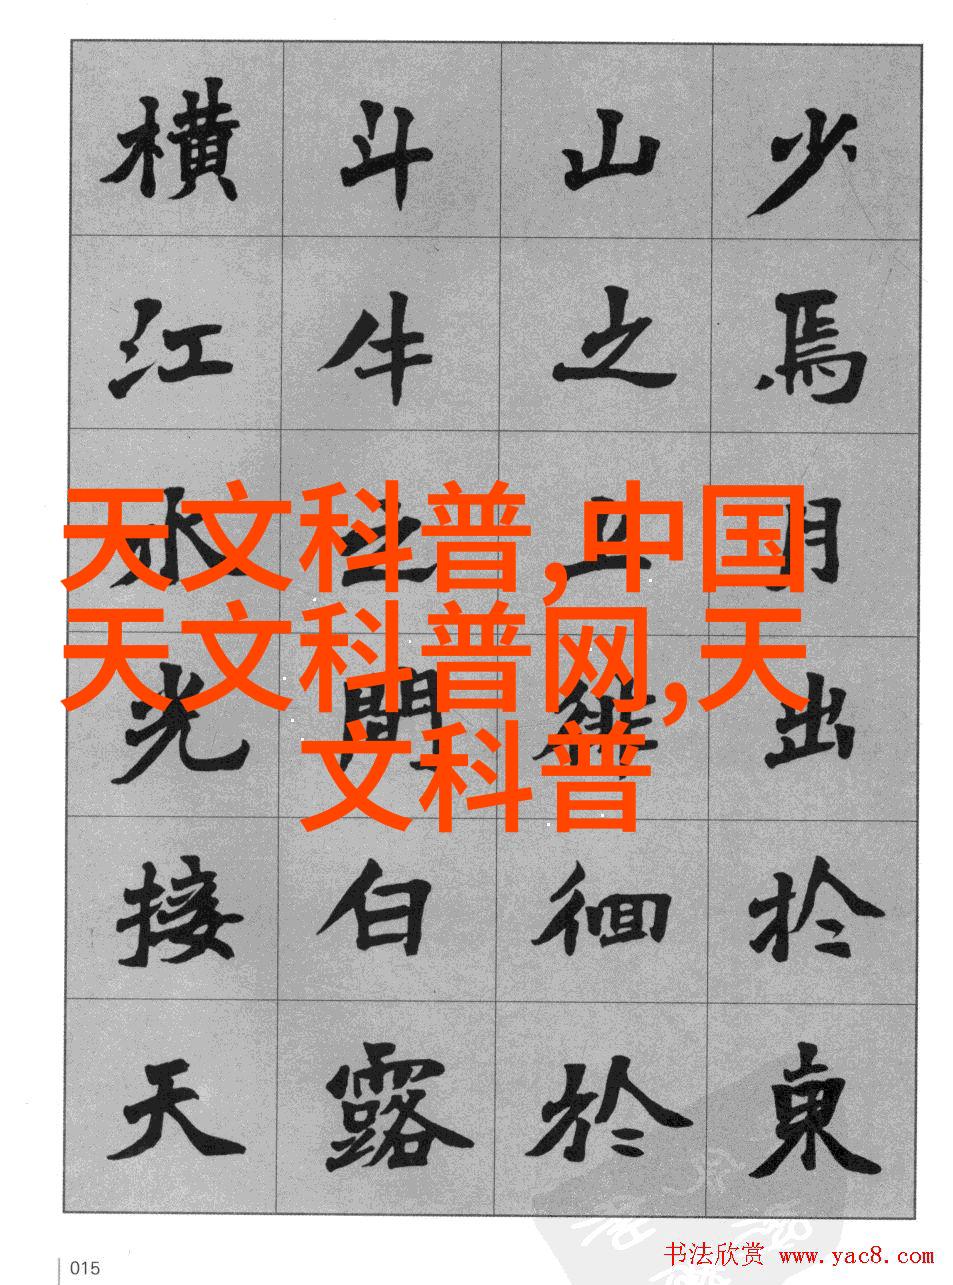 少焉月出扵東
山之上徘徊於
斗牛之間白露
横江水光接天
天文科普,中国
天文科普网,天
文科普
015
书法欣赏 www.yac8.com